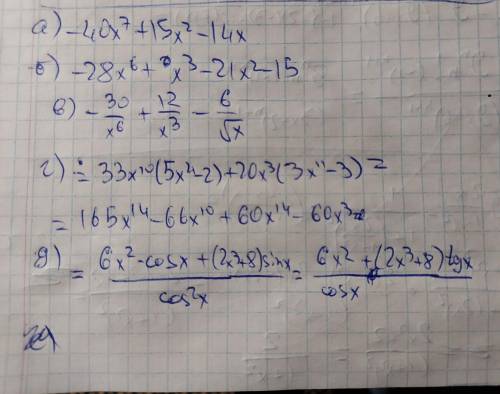 а) -40x⁷+15x²-14x
б) -28x⁶+ x³-21x²-15
в) -30/x⁶ + 12/x³ - 6/√x
г) = 33x¹⁰(5x⁴-2)+20x³(3x¹¹-3) =
= 165x¹⁴-66x¹⁰+60x¹⁴-60x³
д) = (6x²·cosx+(2x³+8)sinx)/cos²x = (6x²+(2x³+8)tgx)/cosx